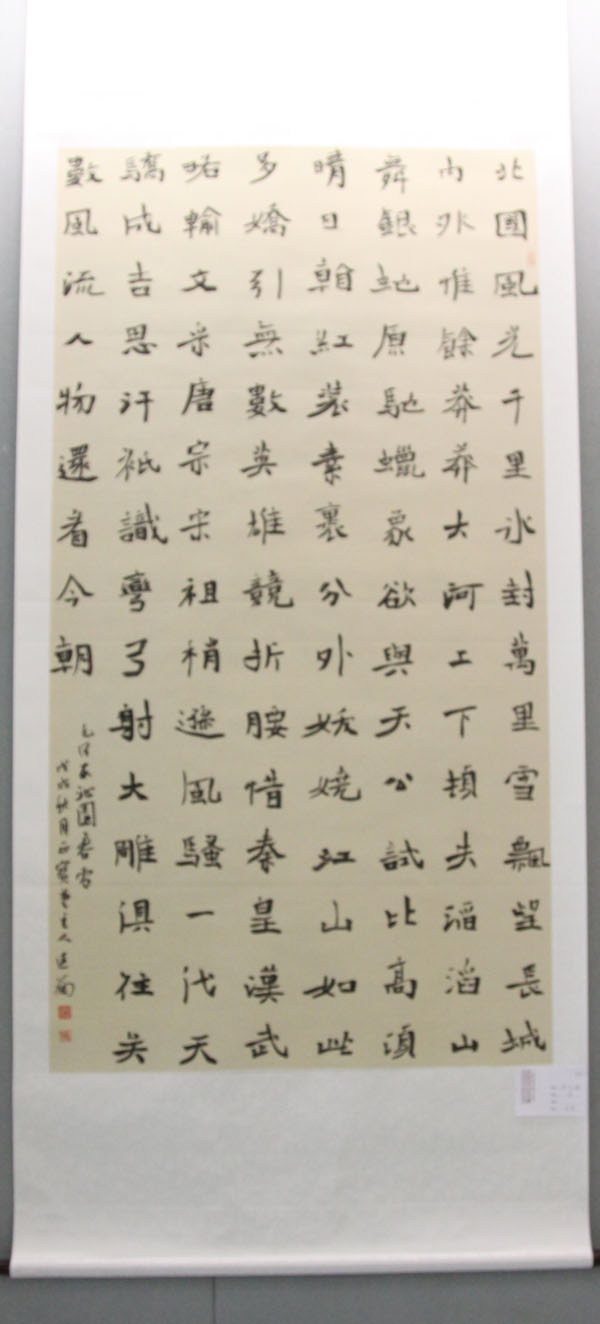 北國風光千里冰封萬里雪飄望長城
內外惟餘莽莽大河上下頓失滔滔山
舞銀蛇原馳蠟象欲與天公試比高須
晴日紅裝素裹分外妖嬈江山如此
多嬌引無數英雄競折腰惜秦皇漢武
略輸文采唐宗宋祖稍遜風騷一代天
驕成吉思汗祇識彎弓射大雕俱往矣
數風流人物還看今朝
毛澤東沁園春雪
戊戌秋月主人